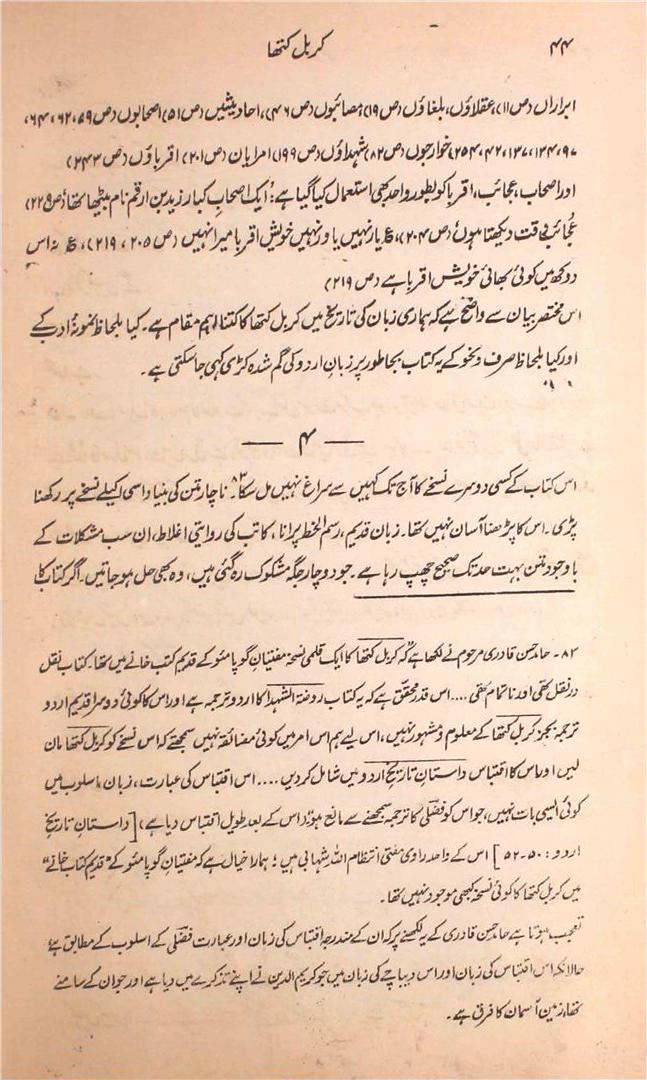 ۴۴
کربل کتھا
ابراراں (ص ۱۱)، عقلاؤں، بلغاؤں (ص ۱۹)، مصائبوں (ص ۴۶)، احادیثیں (ص ۵۱)، اصحابوں (ص ۵۹، ۶۲، ۶۴،
۹۷، ۱۳۴، ۱۳۷، ۴۲، ۲۵۴) خوارجوں (ص ۸۲) شہداؤں (ص ۱۹۹) امرایان (ص ۲۰۱) اقرباؤں (ص ۲۴۳)
اور اصحاب، عجائب، اقربا کو بطور واحد بھی استعمال کیا گیا ہے: ایک اصحابِ کبار زید بن ارقم نام بیٹھا تھا (ص ۲۲۹)
عجائب بے وقت دیکھتا ہوں (ص ۲۰۴)، ع یار نہیں یاور نہیں خویش اقربا میرا نہیں (ص ۲۰۵، ۲۱۹)، ع نہ اس
دوکھ میں کوئی بھائی خویش اقربا ہے (ص ۲۱۹)
اس مختصر بیان سے واضح ہے کہ ہماری زبان کی تاریخ میں کربل کتھا کا کتنا اہم مقام ہے۔ کیا بلحاظ نمونۂ ادب کے
اور کیا بلحاظ صرف و نحو کے یہ کتاب بجا طور پر زبانِ اردو کی گم شدہ کڑی کہی جا سکتی ہے۔
— ۴ —
اس کتاب کے کسی دوسرے نسخے کا آج تک کہیں سے سراغ نہیں مل سکا۸۳۔ ناچار متن کی بنیاد اسی اکیلے نسخے پر رکھنا
پڑی۔ اس کا پڑھنا آسان نہیں تھا۔ زبان قدیم، رسم الخط پرانا، کاتب کی روایتی اغلاط، ان سب مشکلات کے
باوجود متن بہت حد تک صحیح چھپ رہا ہے۔ جو دو چار جگہ مشکوک رہ گئی ہیں، وہ بھی حل ہو جاتیں۔ اگر کتاب کا
۸۳۔ حامد حسن قادری مرحوم نے لکھا ہے کہ "کربل کتھا کا ایک قلمی نسخہ مفتیانِ گوپامئو کے قدیم کتب خانے میں تھا۔ کتاب نقل
در نقل تھی اور ناتمام تھی .... اس قدر محقق ہے کہ یہ کتاب روضۃ الشہدا کا اردو ترجمہ ہے اور اس کا کوئی دوسرا قدیم اردو
ترجمہ بجز کربل کتھا کے معلوم و مشہور نہیں، اس لیے ہم اس امر میں کوئی مضائقہ نہیں سمجھتے کہ اس نسخے کو کربل کتھا مان
لیں اور اس کا اقتباس داستانِ تاریخ اردو میں شامل کر دیں .... اس اقتباس کی عبارت، زبان، اسلوب میں
کوئی ایسی بات نہیں، جو اس کو فضلی کا ترجمہ سمجھنے سے مانع ہو" (اس کے بعد طویل اقتباس دیا ہے) [داستانِ تاریخ
اردو: ۵۰-۵۲] اس کے واحد راوی مفتی انتظام اللہ شہابی ہیں؛ ہمارا خیال ہے کہ مفتیانِ گوپامئو کے "قدیم کتاب خانے"
میں کربل کتھا کا کوئی نسخہ کبھی موجود نہیں تھا۔
تعجب ہوتا ہے حامد حسن قادری کے یہ لکھنے پر کہ ان کے مندرجہ اقتباس کی زبان اور عبارت فضلی کے اسلوب کے مطابق ہے؛
حالانکہ اس اقتباس کی زبان اور اس دیباچے کی زبان میں جو کریم الدین نے اپنے تذکرے میں دیا ہے اور جو ان کے سامنے
تھا، زمین آسمان کا فرق ہے۔